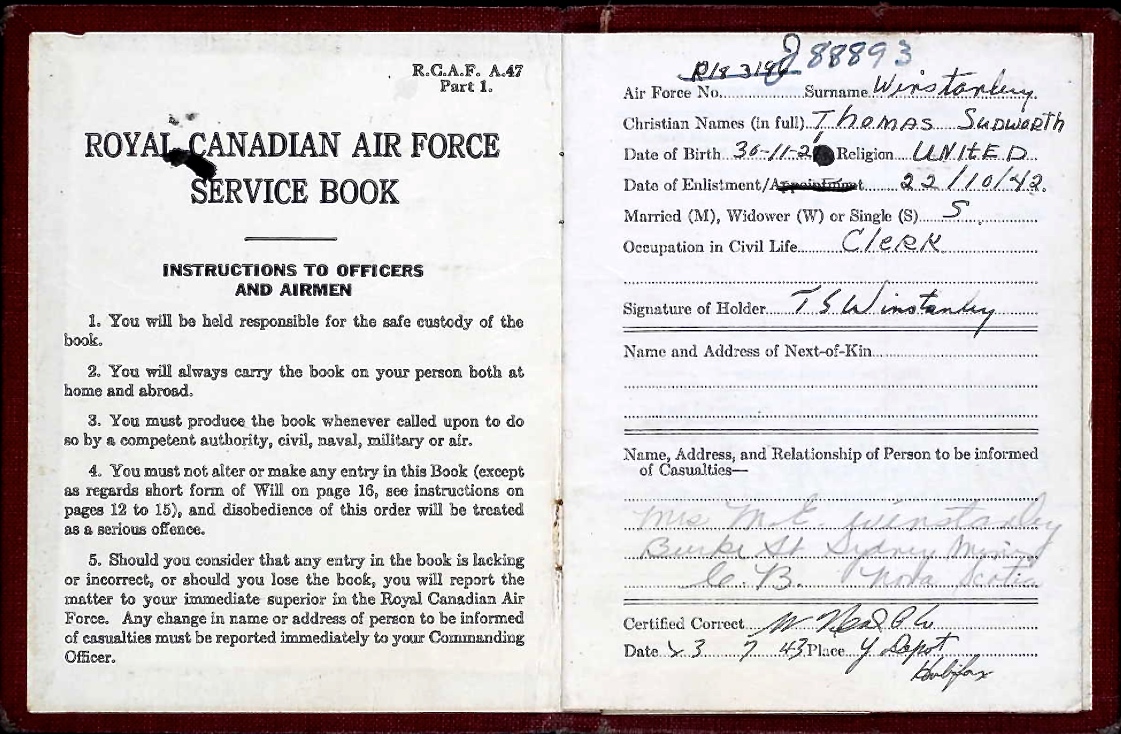 R.C.A.F. A.47
Part 1.
ROYAL CANADIAN AIR FORCE
SERVICE BOOK
INSTRUCTIONS TO OFFICERS
AND AIRMEN
1. You will be held responsible for the safe custody of the
book.
2. You will always carry the book on your person both at
home and abroad.
3. You must produce the book whenever called upon to do
so by a competent authority, civil, naval, military or air.
4. You must not alter or make any entry in this Book (except
as regards short form of Will on page 16, see instructions on
pages 12 to 15), and disobedience of this order will be treated
as a serious offence.
5. Should you consider that any entry in the book is lacking
or incorrect, or should you lose the book, you will report the
matter to your immediate superior in the Royal Canadian Air
Force. Any change in name or address of person to be informed
of casualties must be reported immediately to your Commanding
Officer.
J88893
Air Force No. Surname Winstanley
Christian Names (in full) Thomas Sudworth
Date of Birth 30-11-2 Religion UNITED
Date of Enlistment/Appointment 22/10/42.
Married (M), Widower (W) or Single (S) S
Occupation in Civil Life ClerK
Signature of Holder T S Winstanley
Name and Address of Next-of-Kin
Name, Address, and Relationship of Person to be informed
of Casualties—
Mrs M.E Winstanley
Burke St Sydney Mines
C.B. Nova Scotia
Certified Correct
Date 3 7 43 Place Y Depot
Halifax